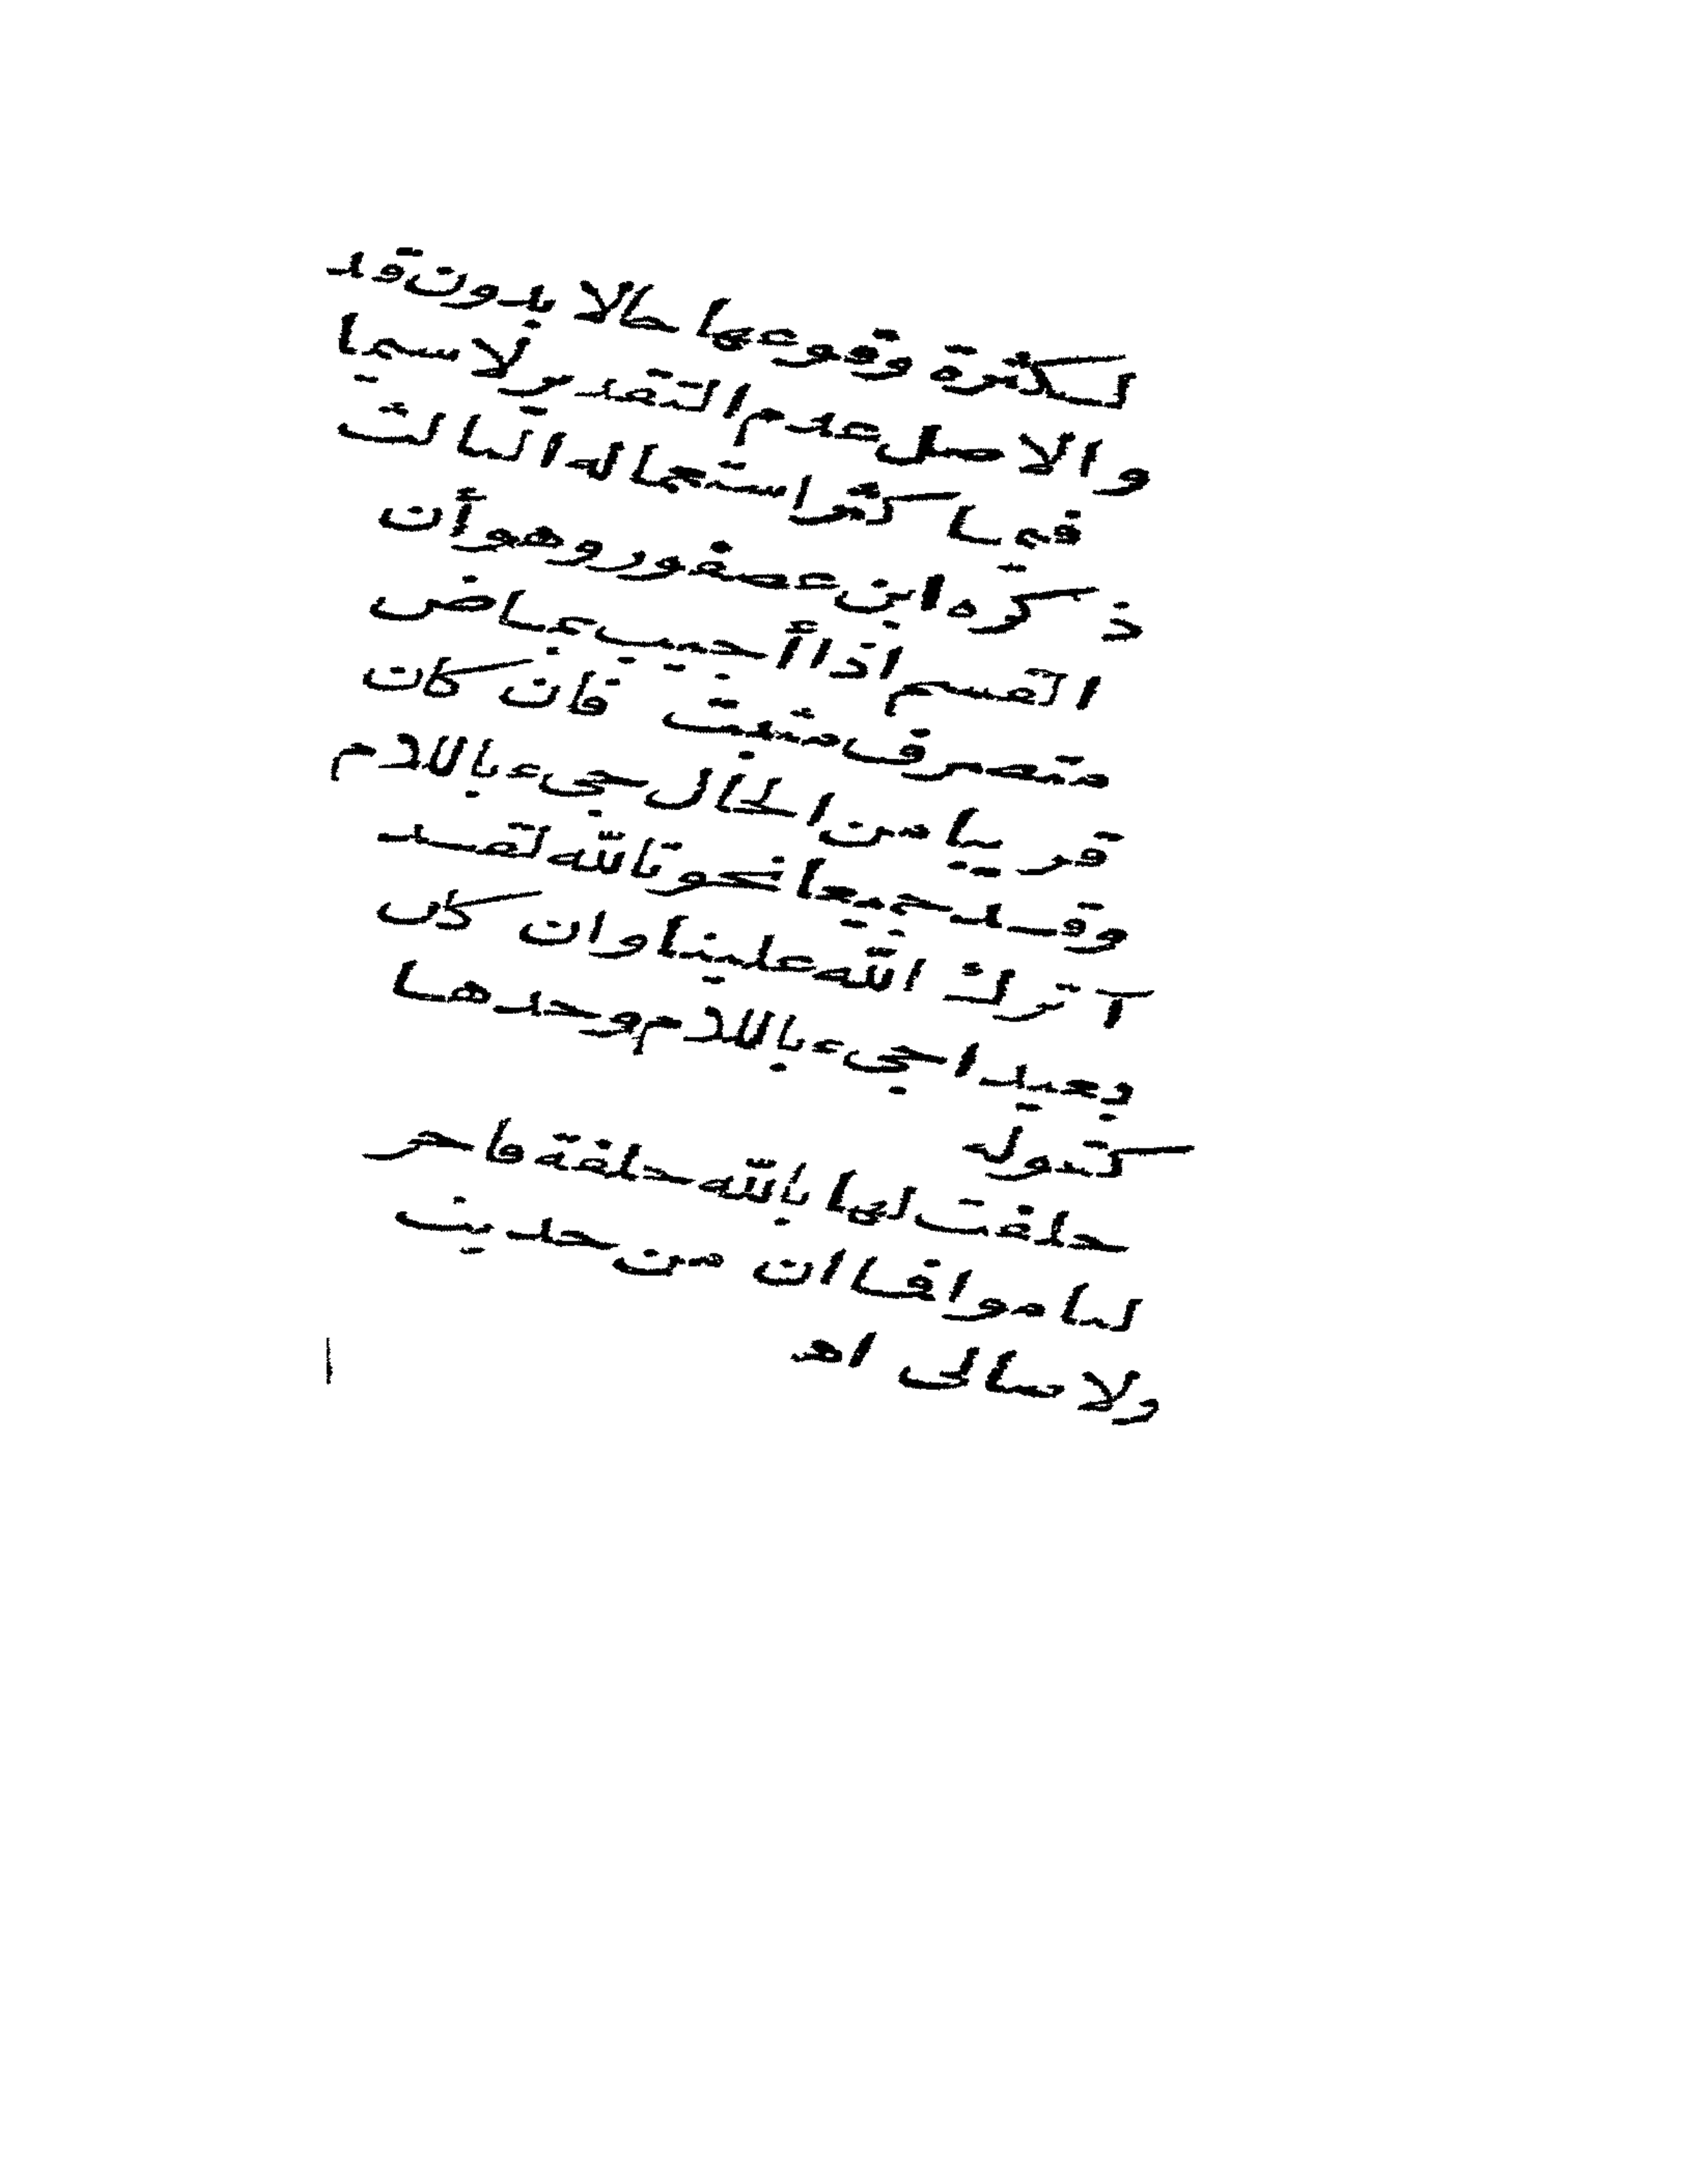 لكثرة وقوعها حالا بدون قد
والاصل عدم التقدير لا سيما
فيما كثر استعماله الثالث
ذكره ابن عصفور وهو أن
القسم اذا أجيب بماض
متصرف مثبت فان كان
قريبا من الحال جىء باللام
وقد جميعا نحو تالله لقد
آثرك الله علينا وان كان
بعيدا جىء باللام وحدها
كقوله
حلفت لها بالله حلفة فاجر
لناموا فما ان من حديث
ولا صالى اه